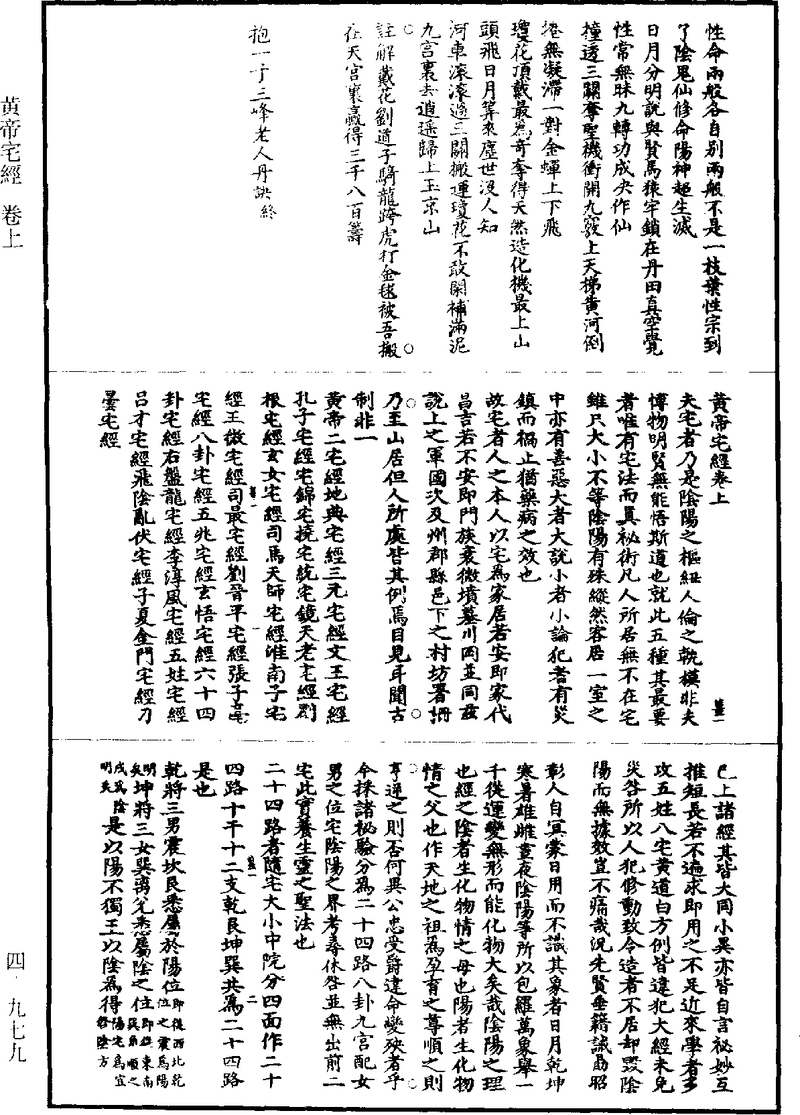 性命兩般各自別兩般不是一枝葉性宗到
了陰鬼仙修命陽神超生滅
日月分明說與賢馬猿牢鎖在丹田真空覺
性常無昧九轉功成夬作仙
撞透三關奪聖機衝開九竅上天梯黄河倒
捲無凝滯一對金蟬上下飛
瓊花頂戴最為奇奪得天然造化機最上山
頭飛日月筭來塵世沒人知
河車滾滾透三關搬運瓊花不敢閑補滿泥
九宫裏去逍遥歸上玉京山
註解戴花劉道子騎龍跨虎打金毬被吾搬
在天宫裏贏得三千八百籌
抱一子三峰老人丹訣終
黄帝宅經卷上
夫宅者乃是陰陽之樞紐人倫之軌模非夫
博物明賢無能悟斯道也就此五種其最要
者唯有宅法而真祕術凡人所居無不在宅
雖只大小不等陰陽有殊縱然客居一室之
中亦有善惡大者大說小者小論犯者有災
鎮而禍止猶藥病之效也
故宅者人之本人以宅為家居若安即家代
昌吉若不安即門族衰微墳墓川岡並同兹
說上之軍國次及州郡縣邑下之村坊署柵
乃至山居但人所處皆其例焉目見耳聞古
制非一
黄帝二宅經地典宅經三元宅經文王宅經
孔子宅經宅錦宅撓宅統宅鏡天老宅經劉
根宅經玄女宅經司馬天師宅經淮南子宅
經王微宅經司最宅經劉晉平宅經張子毫
宅經八卦宅經五兆宅經玄悟宅經六十四
卦宅經右盤龍宅經李淳風宅經五姓宅經
吕才宅經飛陰亂伏宅經子夏金門宅經刀
曇宅經
已上諸經其皆大同小異亦皆自言祕妙互
推短長若不遍求即用之不足近來學者多
攻五姓八宅黄道白方例皆違犯大經未免
災咎所以人犯修動致令造者不居却毁陰
陽而無據效豈不痛哉况先賢垂籍誡勗昭
彰人自冥蒙日用而不識其象者日月乾坤
寒暑雄雌晝夜陰陽等所以包羅萬象舉一
千從運變無形而能化物大矣哉陰陽之理
也經之陰者生化物情之母也陽者生化物
情之父也作天地之祖為孕育之尊順之則
亨逆之則否何異公忠受爵違命變殃者乎
今採諸祕驗分為二十四路八卦九宫配女
男之位宅陰陽之界考尋休咎並無出前二
宅此實養生靈之聖法也
二十四路者隨宅大小中院分四面作二十
四路十干十二支乾艮坤巽共為二十四路
是也
乾將三男震坎艮悉屬於陽位即從西北乾位之震為陽
明矣坤將三女巽离兑悉屬陰之位即從東南巽角順之
戌為陰明矣是以陽不獨王以陰為得陽宅為宜修陰方
黄帝宅經 卷上
四·九七九